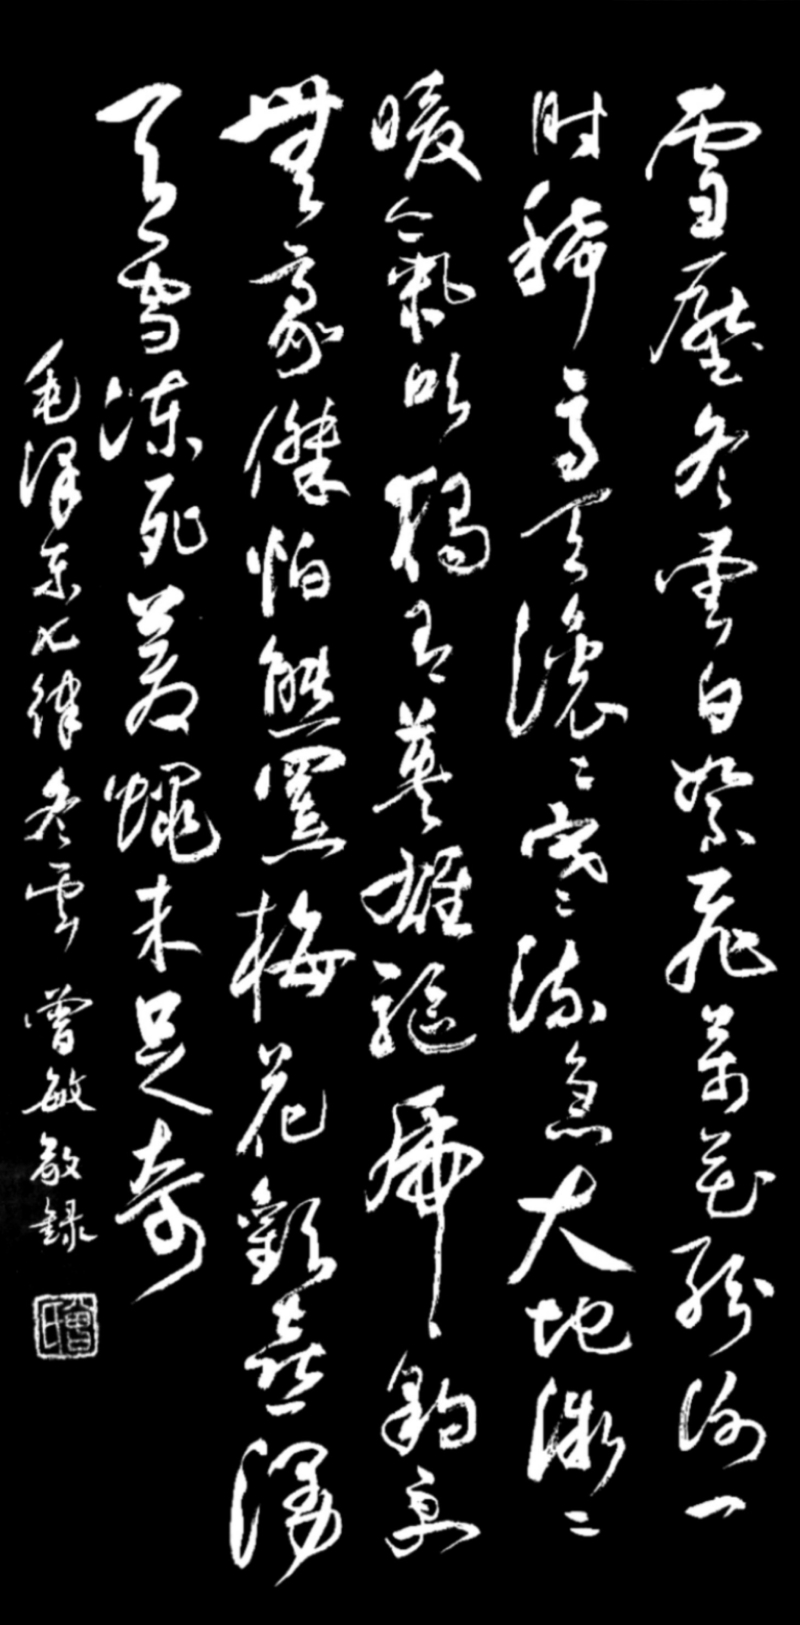 雪壓冬雲白絮飛萬花紛謝一
時稀高天滾〻寒流急大地微〻
暖氣吹獨有英雄驅虎豹更
無豪傑怕熊羆梅花歡喜漫
天雪凍死蒼蠅未足奇
毛澤東七律冬雲 曾敏敬録